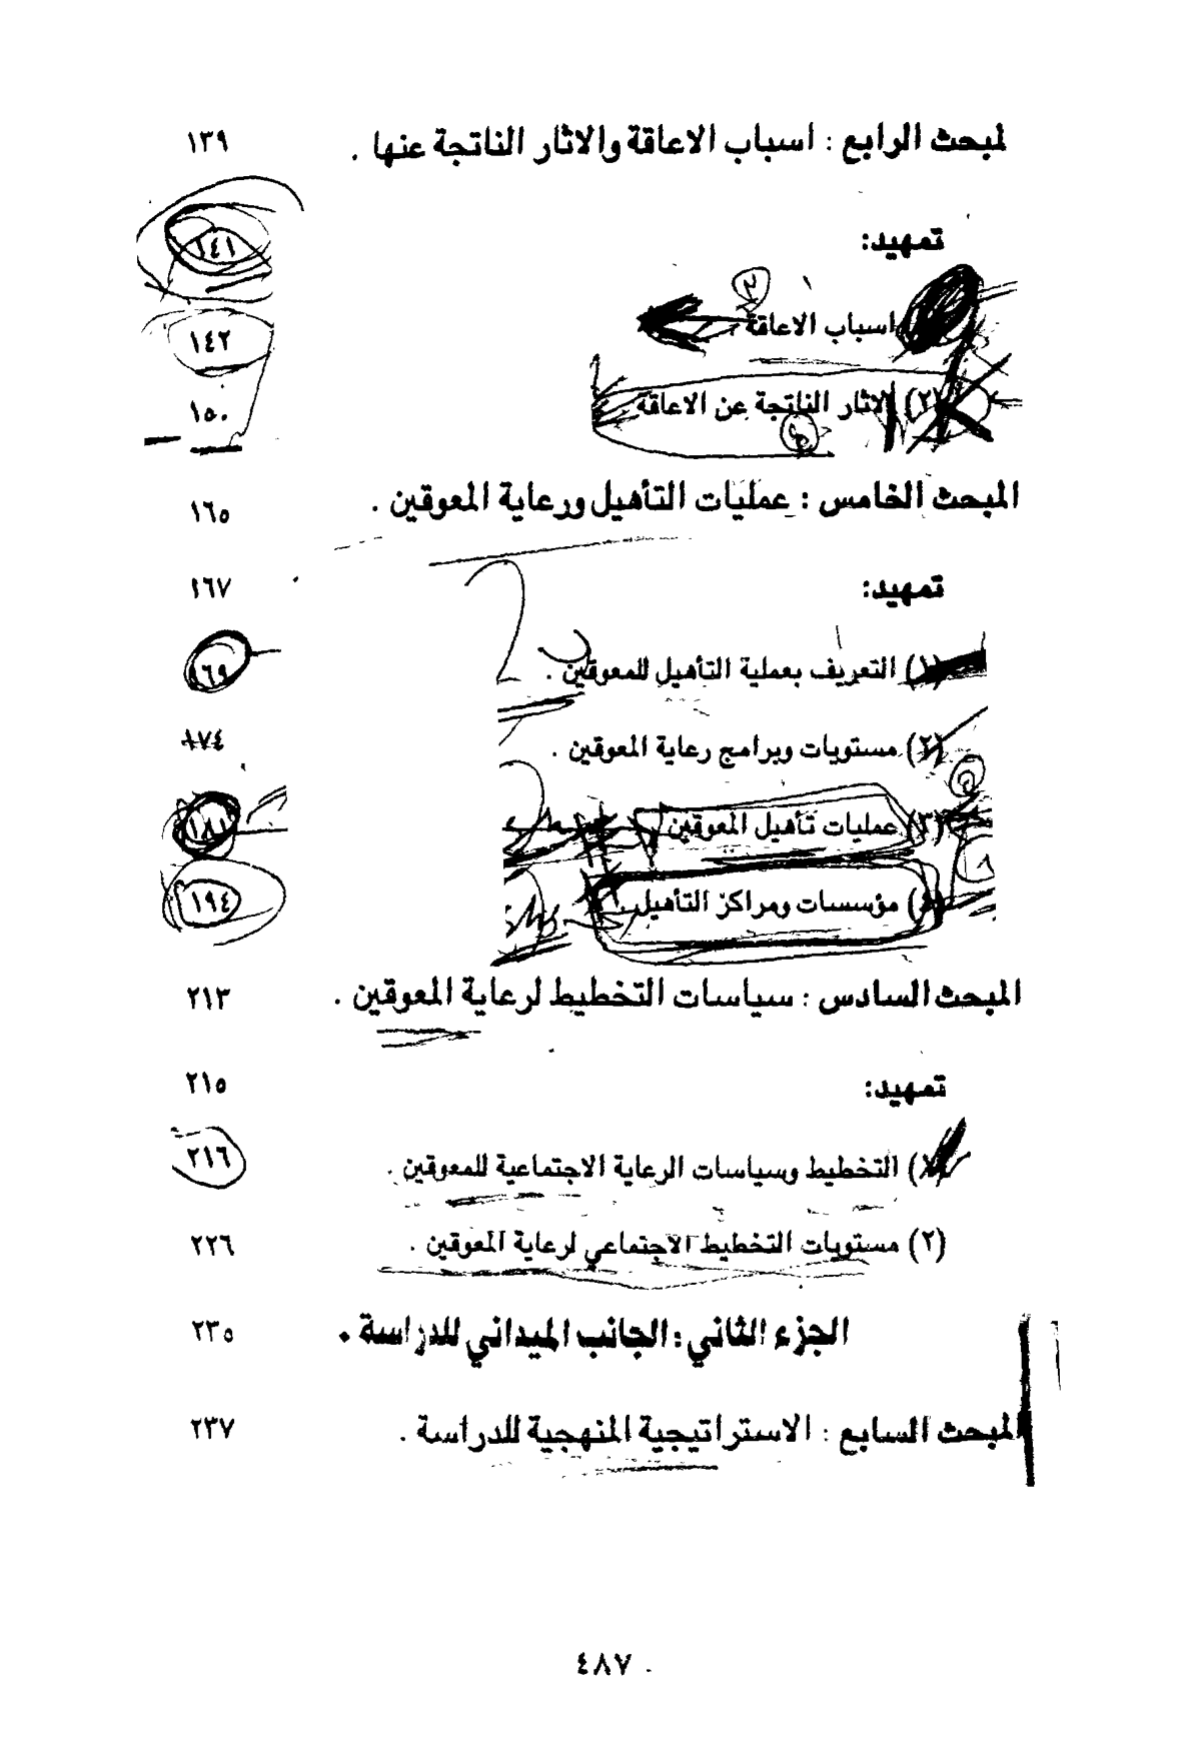 لمبحث الرابع : اسباب الاعاقة والاثار الناتجة عنها . ١٣٩
تمهيد: ١٤١
اسباب الاعاقة . ١٤٢
(٢) الاثار الناتجة عن الاعاقة ١٥٠
المبحث الخامس : عمليات التأهيل ورعاية المعوقين . ١٦٥
تمهيد: ١٦٧
(١) التعريف بعملية التأهيل للمعوقين . ١٦٩
(٢) مستويات وبرامج رعاية المعوقين . ١٧٤
(٣) عمليات تأهيل المعوقين ١٨١
(٤) مؤسسات ومراكز التأهيل . ١٩٤
المبحث السادس : سياسات التخطيط لرعاية المعوقين . ٢١٣
تمهيد: ٢١٥
(١) التخطيط وسياسات الرعاية الاجتماعية للمعوقين . ٢١٦
(٢) مستويات التخطيط الاجتماعي لرعاية المعوقين . ٢٢٦
الجزء الثاني : الجانب الميداني للدراسة . ٢٣٥
المبحث السابع : الاستراتيجية المنهجية للدراسة . ٢٣٧
٤٨٧